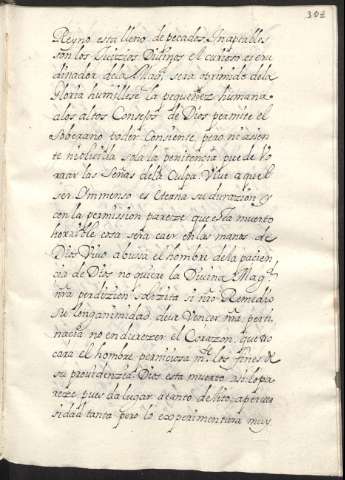 303
Reyno esta lleno de pecados. Inapeables
son los Juizios Diuinos el curioso escu
driñador de la Magd. sera oprimido de la
Gloria humillese la pequeñez humana
a los altos Consejos de Dios permite el
Soberano poder Consiente, pero ni asien
te ni olvida sola la penitencia puede bo
rrar las Señas de la Culpa Viue aquel
ser Immenso es Eterna su durazion y
con la permission pareze que esta muerto
horrible cosa sera caer en las manos de
Dios Viuo abussa el hombre de la pacien
cia de Dios no quiere la Diuina Magd.
nra perdizion solizita si nro Remedio
Su longanimidad deue Vencer nra perti
nacia no endurezer el Corazon, que to
cara el hombre perniciosa mte los fines de
su prouidenzia. Dios esta muerto asi lo pa
reze pues da lugar a tanto delito, a peruer
sidad tanta pero lo experimentara muy